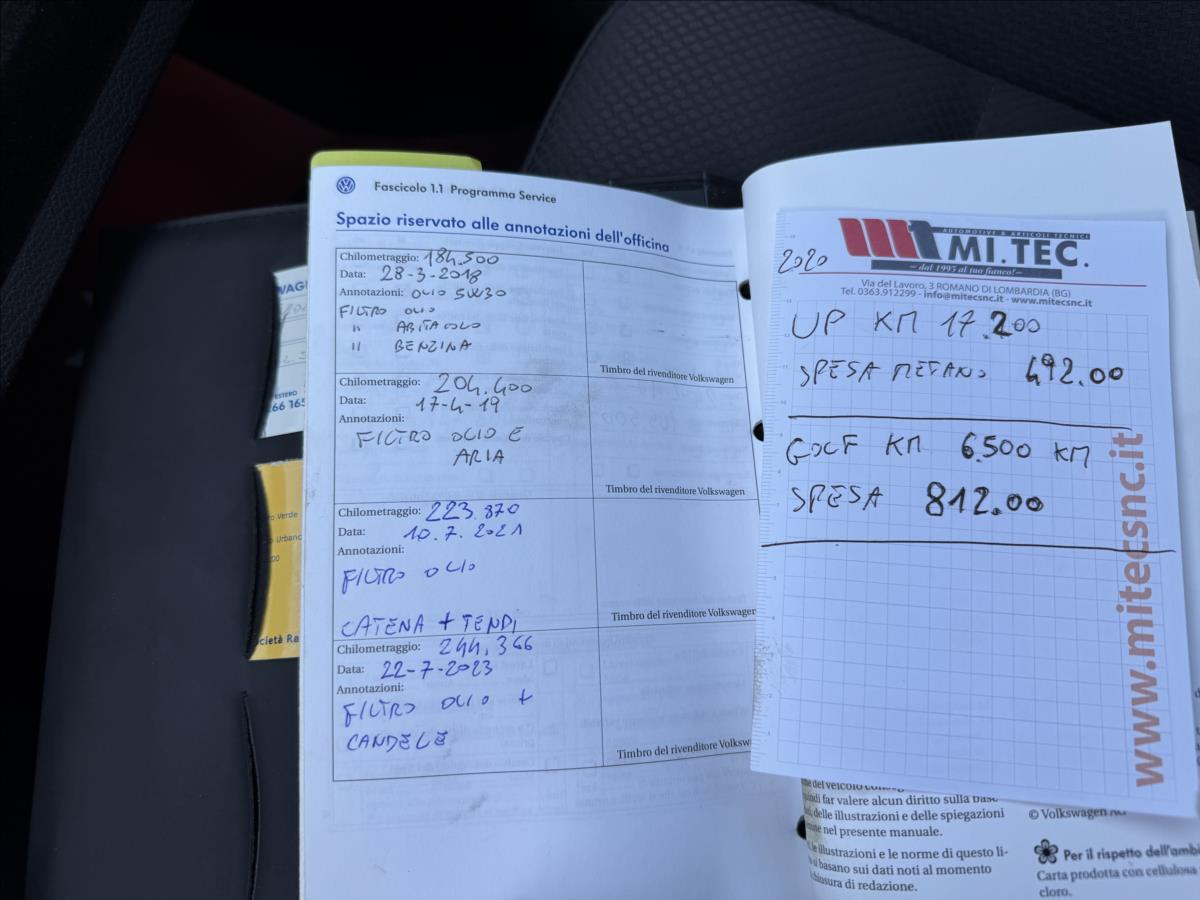 Fascicolo 1.1 Programma Service
Spazio riservato alle annotazioni dell'officina
Chilometraggio: 184.500
Data: 28-3-2018
Annotazioni: OLIO 5W30
FILTRO OLIO
" ABITACOLO
" BENZINA
Timbro del rivenditore Volkswagen
Chilometraggio: 204.400
Data: 17-4-19
Annotazioni:
FILTRO OLIO E
ARIA
Timbro del rivenditore Volkswagen
Chilometraggio: 223.870
Data: 10.7.2021
Annotazioni:
FILTRO OLIO
CATENA + TENDI
Timbro del rivenditore Volkswagen
Chilometraggio: 244,366
Data: 22-7-2023
Annotazioni:
FILTRO OLIO +
CANDELE
Timbro del rivenditore Volksw
2020
MI.TEC.
AUTOMOTIVE & ARTICOLI TECNICI
– dal 1995 al tuo fianco! –
Via del Lavoro, 3 ROMANO DI LOMBARDIA (BG)
Tel. 0363.912299 - info@mitecsnc.it - www.mitecsnc.it
UP KM 17.200
SPESA METANO 492.00
GOLF KM 6.500 KM
SPESA 812.00
www.mitecsnc.it
far valere alcun diritto sulla base
delle illustrazioni e delle spiegazioni
nel presente manuale.
illustrazioni e le norme di questo li-
basano sui dati noti al momento
di redazione.
© Volkswagen AG
Per il rispetto dell'ambi
Carta prodotta con cellulosa
cloro.
WAG
66 165
o Verde
Urbano
00
cietà Ra